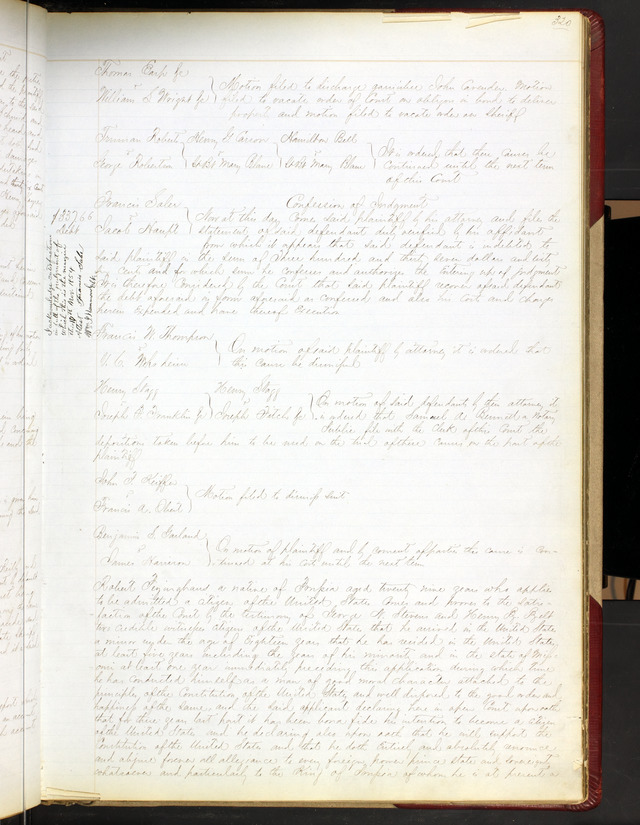 320
Thomas Earp Jr
vs
William S Wright Jr } Motion filed to discharge garnishee John Cavender Motion
filed to vacate order of Court on obligor in bond to deliver
property and motion filed to vacate order on Sheriff
Truman Robert Henry G Carson Hamilton Bell
vs
George Robertson } G B & Mary Blane } G B & Mary Blane } It is ordered that these causes be
continued until the next term
of this Court
Francis Saler Confession of Judgment
vs
Jacob Haupt } Now at this day come said plaintiff by his attorney and files the
statement of said defendant duly verified by his affidavit
from which it appears that said defendant is indebted to
said plaintiff in the sum of Three hundred and thirty seven dollars and sixty
six cents and for which sum he confesses and authorizes the entering up of judgment
It is therefore Considered by the Court that said plaintiff recover of said defendant
the debt aforesaid in form aforesaid as confessed and also his cost and charges
herein expended and have thereof Execution
$337 66
Debt
I acknowledge satisfaction
in full of the judgment of
which this is the margin
Nov 1854
Attest Francis Saler
Francis N Thompson
vs
} On motion of said plaintiff by attorney it is ordered that
this cause be dismissed
Henry Stagg Henry Stagg
vs vs
Joseph S Franklin Jr } Joseph Foteh Jr } On motion of said defendants by their attorney it
is ordered that Samuel A Bennett a Notary
Public file with the Clerk of this Court the
depositions taken before him to be used on the trial of these causes on the part of the
plaintiff
John F Keiffe
vs
Francis A Obert } Motion filed to dismiss suit
Benjamin S Garland
vs
James Harrison } On motion of plaintiff and by consent of parties this cause is con-
tinued at his cost until the next term
Robert a native of aged twenty nine years who applies
to be admitted a Citizen of the United States Comes and proves to the satis-
faction of the Court by the testimony of George W Stevens and Henry B Belt
two credible witnesses citizens of the United States that he arrived in the United States
a minor under the age of Eighteen years that he has resided in the United States
at least five years including the years of his minority and in the state of Miss-
ouri at least one year immediately preceding this application during which time
he has conducted himself as a man of good moral character attached to the
principles of the Constitution of the United States and well disposed to the good order and
happiness of the same and the said applicant declaring here in open Court upon oath
that for three years last past it has been bona fide his intention to become a citizen
of the United States and he declaring also upon oath that he will support the
Constitution of the United States and that he doth entirely and absolutely renounce
and abjure forever all allegiance to every foreign power prince state and sovereignty
whatsoever and particularly to the King of of whom he is at present a